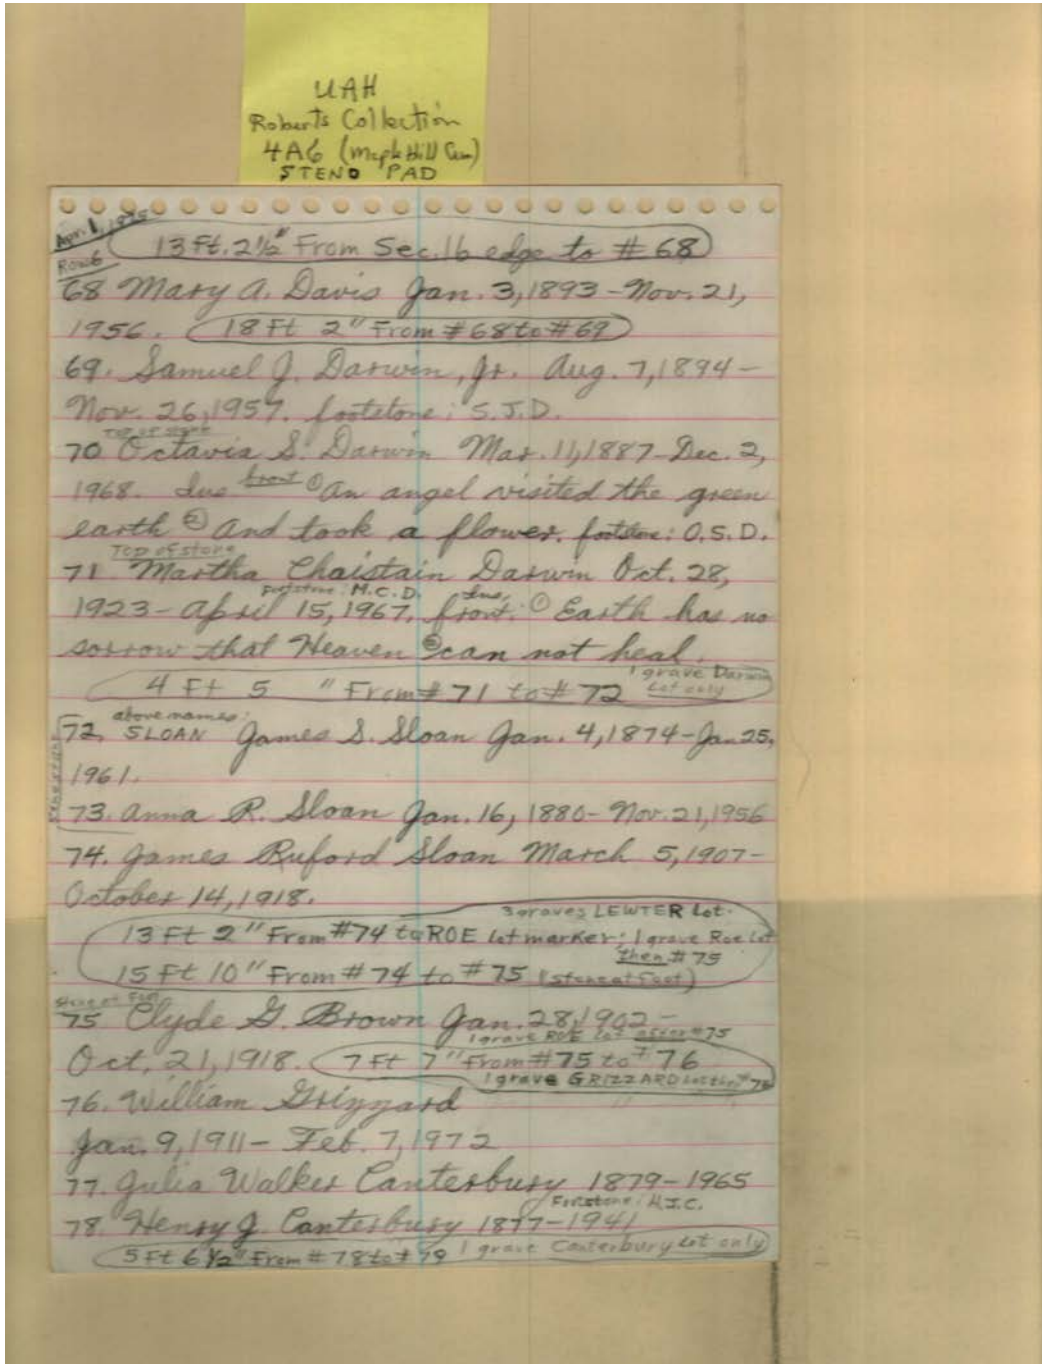 UAH
Roberts Collection
4A6 (Maple Hill Cem)
STENO PAD
Apr. 1, 1975
13 Ft. 2½" From Sec. 16 edge to # 68
Row 6
68 Mary A. Davis Jan. 3, 1893 - Nov. 21,
1956. 18 Ft 2" From # 68 to # 69
69. Samuel J. Darwin, Jr. Aug. 7, 1894 -
Nov. 26, 1957. footstone: S.J.D.
Top of stone
70 Octavia S. Darwin Mar. 11, 1887 - Dec. 2,
1968. Ins front ① An angel visited the green
earth ② And took a flower. footstone: O.S.D.
Top of stone
71. Martha Chaistain Darwin Oct. 28,
Footstone: M.C.D. Ins.
1923 - April 15, 1967. front: ① Earth has no
sorrow that Heaven ② can not heal.
1 grave Darwin
4 Ft 5 " From # 71 to # 72 Lot only
above names:
72. SLOAN James S. Sloan Jan. 4, 1874 - Jan 25,
1961.
73. Anna R. Sloan Jan. 16, 1880 - Nov. 21, 1956
74. James Ruford Sloan March 5, 1907 -
October 14, 1918.
3 graves LEWTER Lot.
13 Ft 2" From #74 to ROE Lot marker; 1 grave Roe Lot
then # 75
15 Ft 10" From # 74 to # 75 (stone at foot)
Stone at Foot
75 Clyde G. Brown Jan. 28, 1902 -
1 grave ROE Lot after #75
Oct. 21, 1918. 7 Ft 7" From # 75 to # 76
1 grave GRIZZARD Lot
76. William Grizzard
Jan. 9, 1911 - Feb. 7, 1972
77. Julia Walker Canterbury 1879 - 1965
Footstone: H.J.C.
78. Henry J. Canterbury 1877 - 1941
5 Ft 6 ½" From # 78 to # 79 1 grave Canterbury Lot only